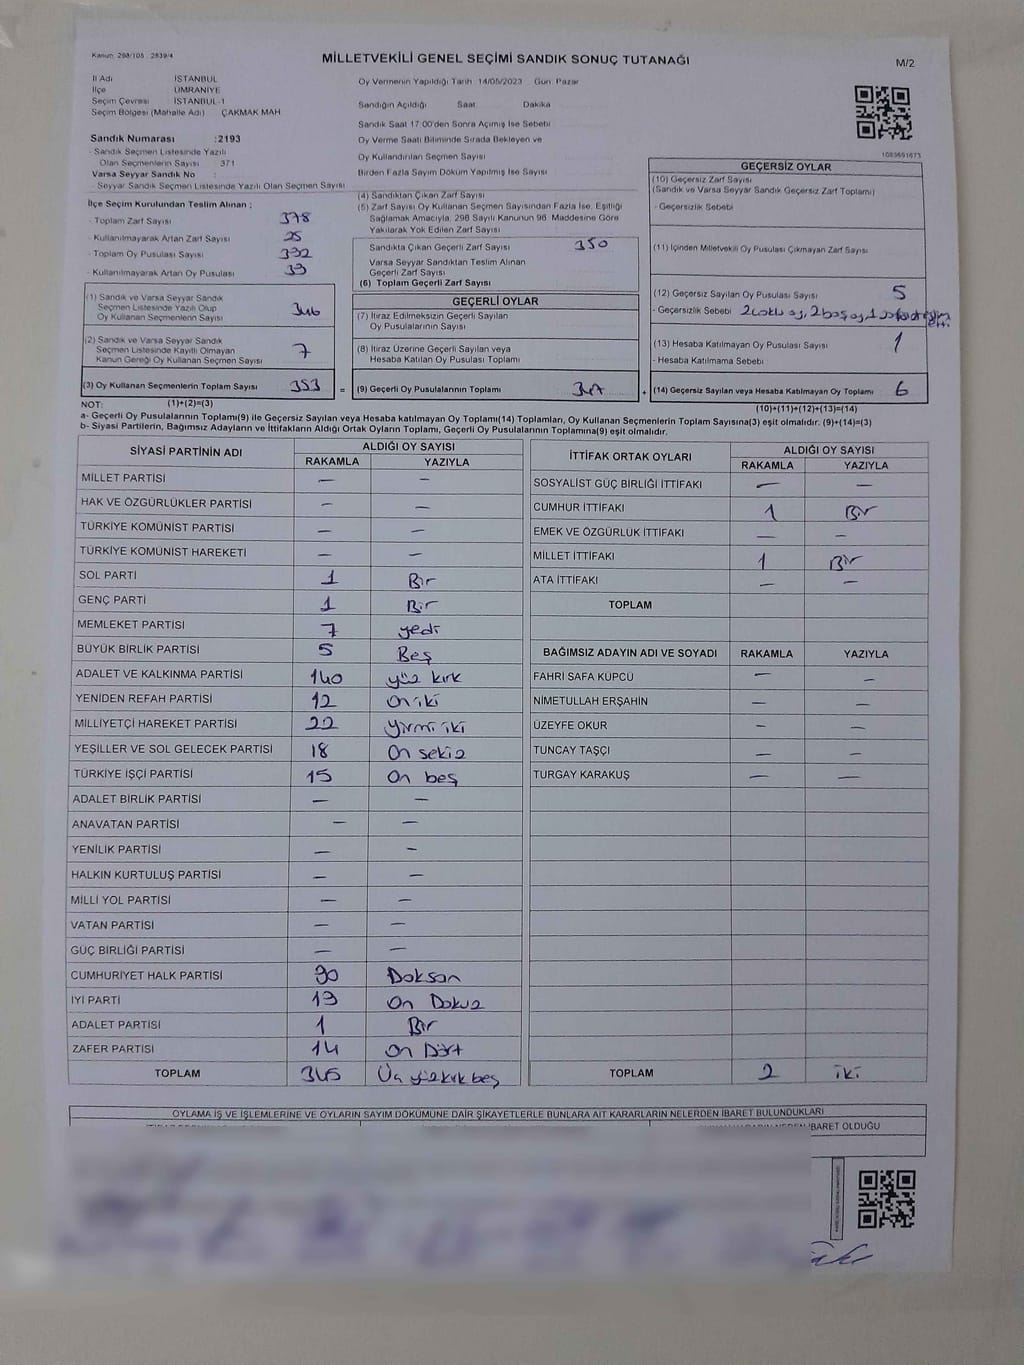 Kanun: 298/105 - 2839/4
MİLLETVEKİLİ GENEL SEÇİMİ SANDIK SONUÇ TUTANAĞI
M/2
İl Adı İSTANBUL
İlçe ÜMRANİYE
Seçim Çevresi İSTANBUL-1
Seçim Bölgesi (Mahalle Adı) ÇAKMAK MAH
Sandık Numarası :2193
- Sandık Seçmen Listesinde Yazılı
Olan Seçmenlerin Sayısı : 371
Varsa Seyyar Sandık No :
- Seyyar Sandık Seçmen Listesinde Yazılı Olan Seçmen Sayısı
İlçe Seçim Kurulundan Teslim Alınan :
- Toplam Zarf Sayısı 378
- Kullanılmayarak Artan Zarf Sayısı 25
- Toplam Oy Pusulası Sayısı 332
- Kullanılmayarak Artan Oy Pusulası 33
(1) Sandık ve Varsa Seyyar Sandık
Seçmen Listesinde Yazılı Olup
Oy Kullanan Seçmenlerin Sayısı 346
(2) Sandık ve Varsa Seyyar Sandık
Seçmen Listesinde Kayıtlı Olmayan
Kanun Gereği Oy Kullanan Seçmen Sayısı 7
(3) Oy Kullanan Seçmenlerin Toplam Sayısı 353 =
Oy Vermenin Yapıldığı Tarih 14/05/2023 Gün Pazar
Sandığın Açıldığı Saat Dakika
Sandık Saat 17:00'den Sonra Açımış İse Sebebi
Oy Verme Saati Bitiminde Sırada Bekleyen ve
Oy Kullandırılan Seçmen Sayısı
Birden Fazla Sayım Döküm Yapılmış İse Sayısı
(4) Sandıktan Çıkan Zarf Sayısı
(5) Zarf Sayısı Oy Kullanan Seçmen Sayısından Fazla İse, Eşitliği
Sağlamak Amacıyla, 298 Sayılı Kanunun 98. Maddesine Göre
Yakılarak Yok Edilen Zarf Sayısı
Sandıkta Çıkan Geçerli Zarf Sayısı 350
Varsa Seyyar Sandıktan Teslim Alınan
Geçerli Zarf Sayısı
(6) Toplam Geçerli Zarf Sayısı
GEÇERLİ OYLAR
(7) İtiraz Edilmeksizin Geçerli Sayılan
Oy Pusulalarının Sayısı
(8) İtiraz Üzerine Geçerli Sayılan veya
Hesaba Katılan Oy Pusulası Toplamı
(9) Geçerli Oy Pusulalarının Toplamı 347 +
1083691673
GEÇERSİZ OYLAR
(10) Geçersiz Zarf Sayısı
(Sandık ve Varsa Seyyar Sandık Geçersiz Zarf Toplamı)
- Geçersizlik Sebebi
(11) İçinden Milletvekili Oy Pusulası Çıkmayan Zarf Sayısı
(12) Geçersiz Sayılan Oy Pusulası Sayısı 5
- Geçersizlik Sebebi 2 çoklu oy, 2 boş oy, 1
(13) Hesaba Katılmayan Oy Pusulası Sayısı 1
- Hesaba Katılmama Sebebi
(14) Geçersiz Sayılan veya Hesaba Katılmayan Oy Toplamı 6
NOT: (1)+(2)=(3)
(10)+(11)+(12)+(13)=(14)
a- Geçerli Oy Pusulalarının Toplamı(9) ile Geçersiz Sayılan veya Hesaba katılmayan Oy Toplamı(14) Toplamları, Oy Kullanan Seçmenlerin Toplam Sayısına(3) eşit olmalıdır. (9)+(14)=(3)
b- Siyasi Partilerin, Bağımsız Adayların ve İttifakların Aldığı Ortak Oyların Toplamı, Geçerli Oy Pusulalarının Toplamına(9) eşit olmalıdır.
SİYASİ PARTİNİN ADI ALDIĞI OY SAYISI
RAKAMLA YAZIYLA
MİLLET PARTİSİ — —
HAK VE ÖZGÜRLÜKLER PARTİSİ — —
TÜRKİYE KOMÜNİST PARTİSİ — —
TÜRKİYE KOMÜNİST HAREKETİ — —
SOL PARTİ 1 Bir
GENÇ PARTİ 1 Bir
MEMLEKET PARTİSİ 7 yedi
BÜYÜK BİRLİK PARTİSİ 5 Beş
ADALET VE KALKINMA PARTİSİ 140 yüz kırk
YENİDEN REFAH PARTİSİ 12 on iki
MİLLİYETÇİ HAREKET PARTİSİ 22 yirmi iki
YEŞİLLER VE SOL GELECEK PARTİSİ 18 on sekiz
TÜRKİYE İŞÇİ PARTİSİ 15 on beş
ADALET BİRLİK PARTİSİ — —
ANAVATAN PARTİSİ — —
YENİLİK PARTİSİ — —
HALKIN KURTULUŞ PARTİSİ — —
MİLLİ YOL PARTİSİ — —
VATAN PARTİSİ — —
GÜÇ BİRLİĞİ PARTİSİ — —
CUMHURİYET HALK PARTİSİ 90 Doksan
İYİ PARTİ 19 On Dokuz
ADALET PARTİSİ 1 Bir
ZAFER PARTİSİ 14 on Dört
TOPLAM 345 Üç yüz kırk beş
İTTİFAK ORTAK OYLARI ALDIĞI OY SAYISI
RAKAMLA YAZIYLA
SOSYALİST GÜÇ BİRLİĞİ İTTİFAKI — —
CUMHUR İTTİFAKI 1 Bir
EMEK VE ÖZGÜRLÜK İTTİFAKI — —
MİLLET İTTİFAKI 1 Bir
ATA İTTİFAKI — —
TOPLAM
BAĞIMSIZ ADAYIN ADI VE SOYADI RAKAMLA YAZIYLA
FAHRİ SAFA KÜPCÜ — —
NİMETULLAH ERŞAHİN — —
ÜZEYFE OKUR — —
TUNCAY TAŞÇI — —
TURGAY KARAKUŞ — —
TOPLAM 2 iki
OYLAMA İŞ VE İŞLEMLERİNE VE OYLARIN SAYIM DÖKÜMÜNE DAİR ŞİKAYETLERLE BUNLARA AİT KARARLARIN NELERDEN İBARET BULUNDUKLARI
İBARET OLDUĞU